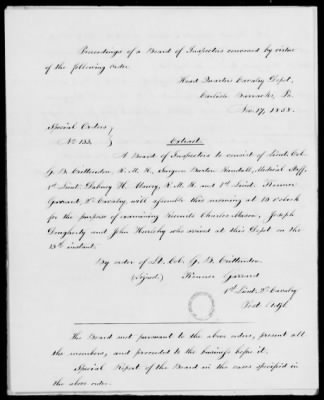 Proceedings of a Board of Inspectors convened by virtue
of the following order
Head Quarters Cavalry Depot,
Carlisle Barracks, Pa.
Nov. 17, 1858.
Special Orders
No 133.
Extract
A Board of Inspectors to consist of Lieut. Col.
G. B. Crittenden, R. M. R., Surgeon Burton Randall, Medical Staff,
1st Lieut. Dabney H. Maury, R. M. R. and 1st Lieut. Kenner
Garrard, 2d Cavalry, will assemble this morning at 10 o'clock
for the purpose of examining Recruits Charles Mason, Joseph
Dougherty and John who arrived at this Depot on the
15th instant.
By order of Lt. Col. G. B. Crittenden
(Signed) Kenner Garrard
1st Lieut. 2d Cavalry
Post Adjt.
The Board met pursuant to the above orders, present all
the members, and proceeded to the business before it.
Special Report of the Board in the cases specified in
the above order.